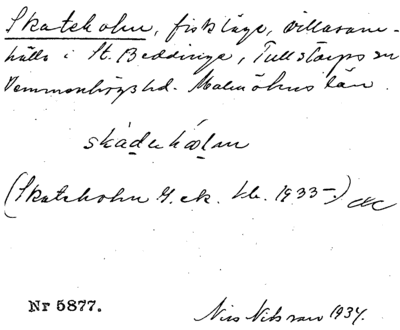 Skateholm, fiskläge, villasam-
hälle i St. Beddinge, Tullstorps sn
Vemmenhögs hd. Malmöhus län.
skadehålm
(Skateholm G. ek. bl. 1933-)
Nr 5877.
Nils Nilsson 1934.